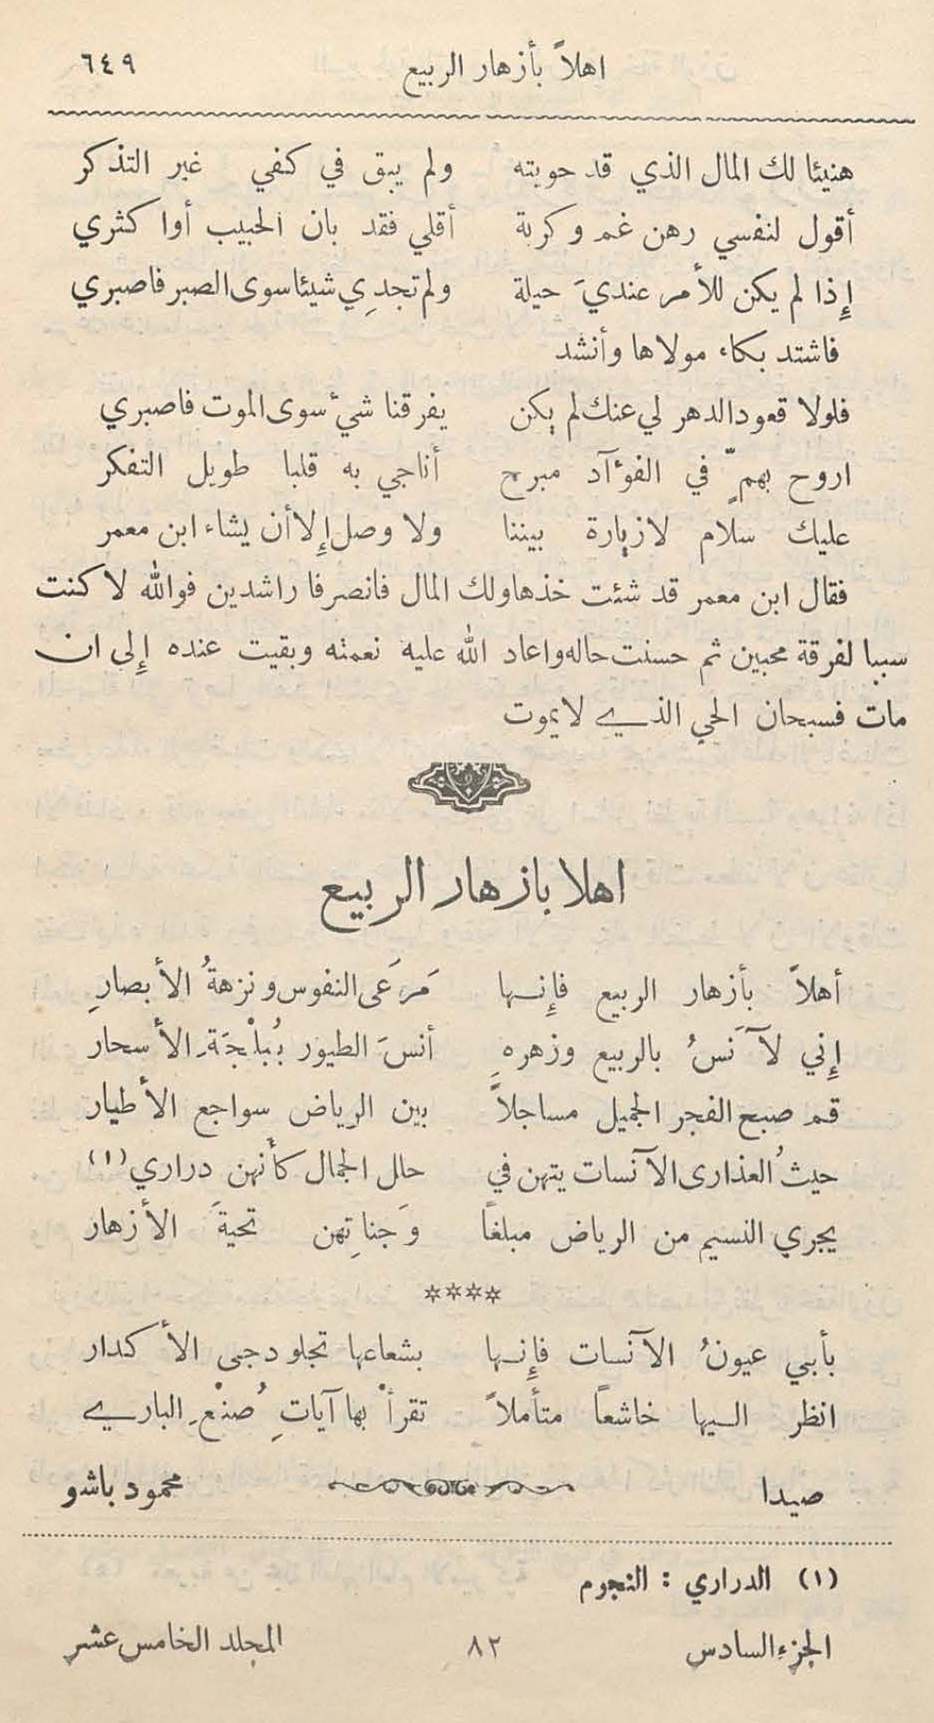 اهلاً بأزهار الربيع ٦٤٩
هنيئا لك المال الذي قد حويته ولم يبق في كفي غير التذكر
أقول لنفسي رهن غم وكربة أقلي فقد بان الحبيب أوا كثري
إذا لم يكن للأمر عنديَ حيلة ولم تجدِي شيئا سوى الصبر فاصبري
فاشتد بكاء مولاها وأنشد
فلولا قعود الدهر لي عنك لم يكن يفرقنا شيء سوى الموت فاصبري
اروح بهمٍّ في الفؤآد مبرح أناجي به قلبا طويل التفكر
عليك سلام لا زيارة بيننا ولا وصل إلا أن يشاء ابن معمر
فقال ابن معمر قد شئت خذها ولك المال فانصرفا راشدين فوالله لا كنت
سببا لفرقة محبين ثم حسنت حاله واعاد الله عليه نعمته وبقيت عنده إلى ان
مات فسبحان الحي الذي لا يموت
اهلا بازهار الربيع
أهلاً بأزهار الربيع فإنها مَرعَى النفوس ونزهةُ الأبصارِ
إني لآنَسُ بالربيع وزهرهِ أنسَ الطيور بُبلْجَةِ الأسحار
قم صبح الفجر الجميل مساجلاً بين الرياض سواجع الأطيار
حيثُ العذارى الآنسات يتهن في حلل الجمال كأنهن دراري (١)
يجري النسيم من الرياض مبلغاً وَجناتِهن تحيةَ الأزهار
****
بأبي عيونُ الآنسات فإنها بشعاعها تجلو دجى الأكدار
انظر اليها خاشعاً متأملاً تقرأْ بها آياتِ صُنْعِ الباري
صيدا محمود باشو
(١) الدراري : النجوم
الجزء السادس ٨٢ المجلد الخامس عشر